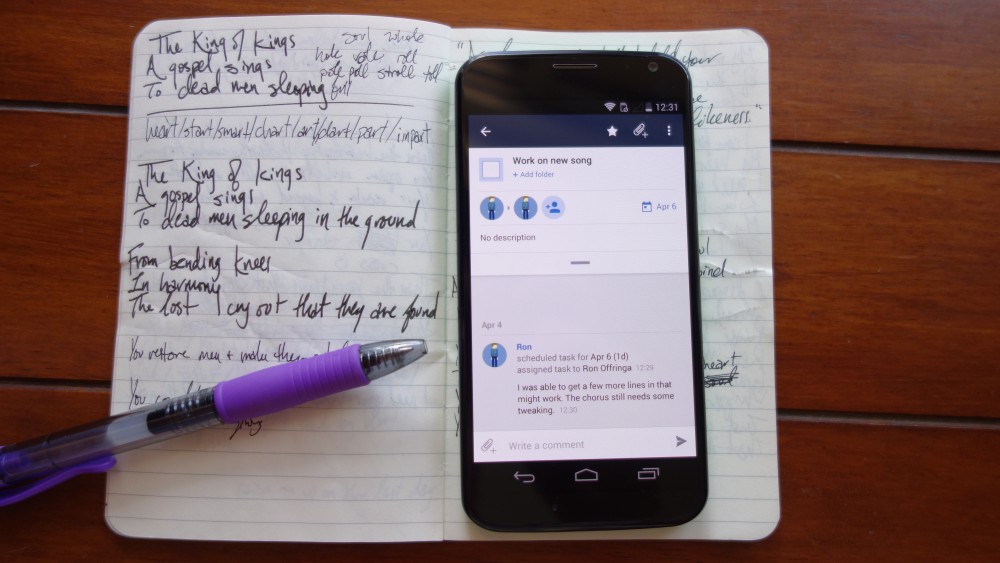 The King of kings
A gospel sings
To dead men sleeping
soul whole
hole role roll
pole poll stroll toll
heart/start/smart/chart/art/dart/part/impart
The King of kings
A gospel sings
To dead men sleeping in the ground
From bending knees
In harmony
The lost cry out that they are found
You restore men + make them
You
likeness."
heart
12:31
Work on new song
+ Add folder
Apr 6
No description
Apr 4
Ron
scheduled task for Apr 6 (1d)
assigned task to Ron Offringa 12:29
I was able to get a few more lines in that
might work. The chorus still needs some
tweaking. 12:30
Write a comment